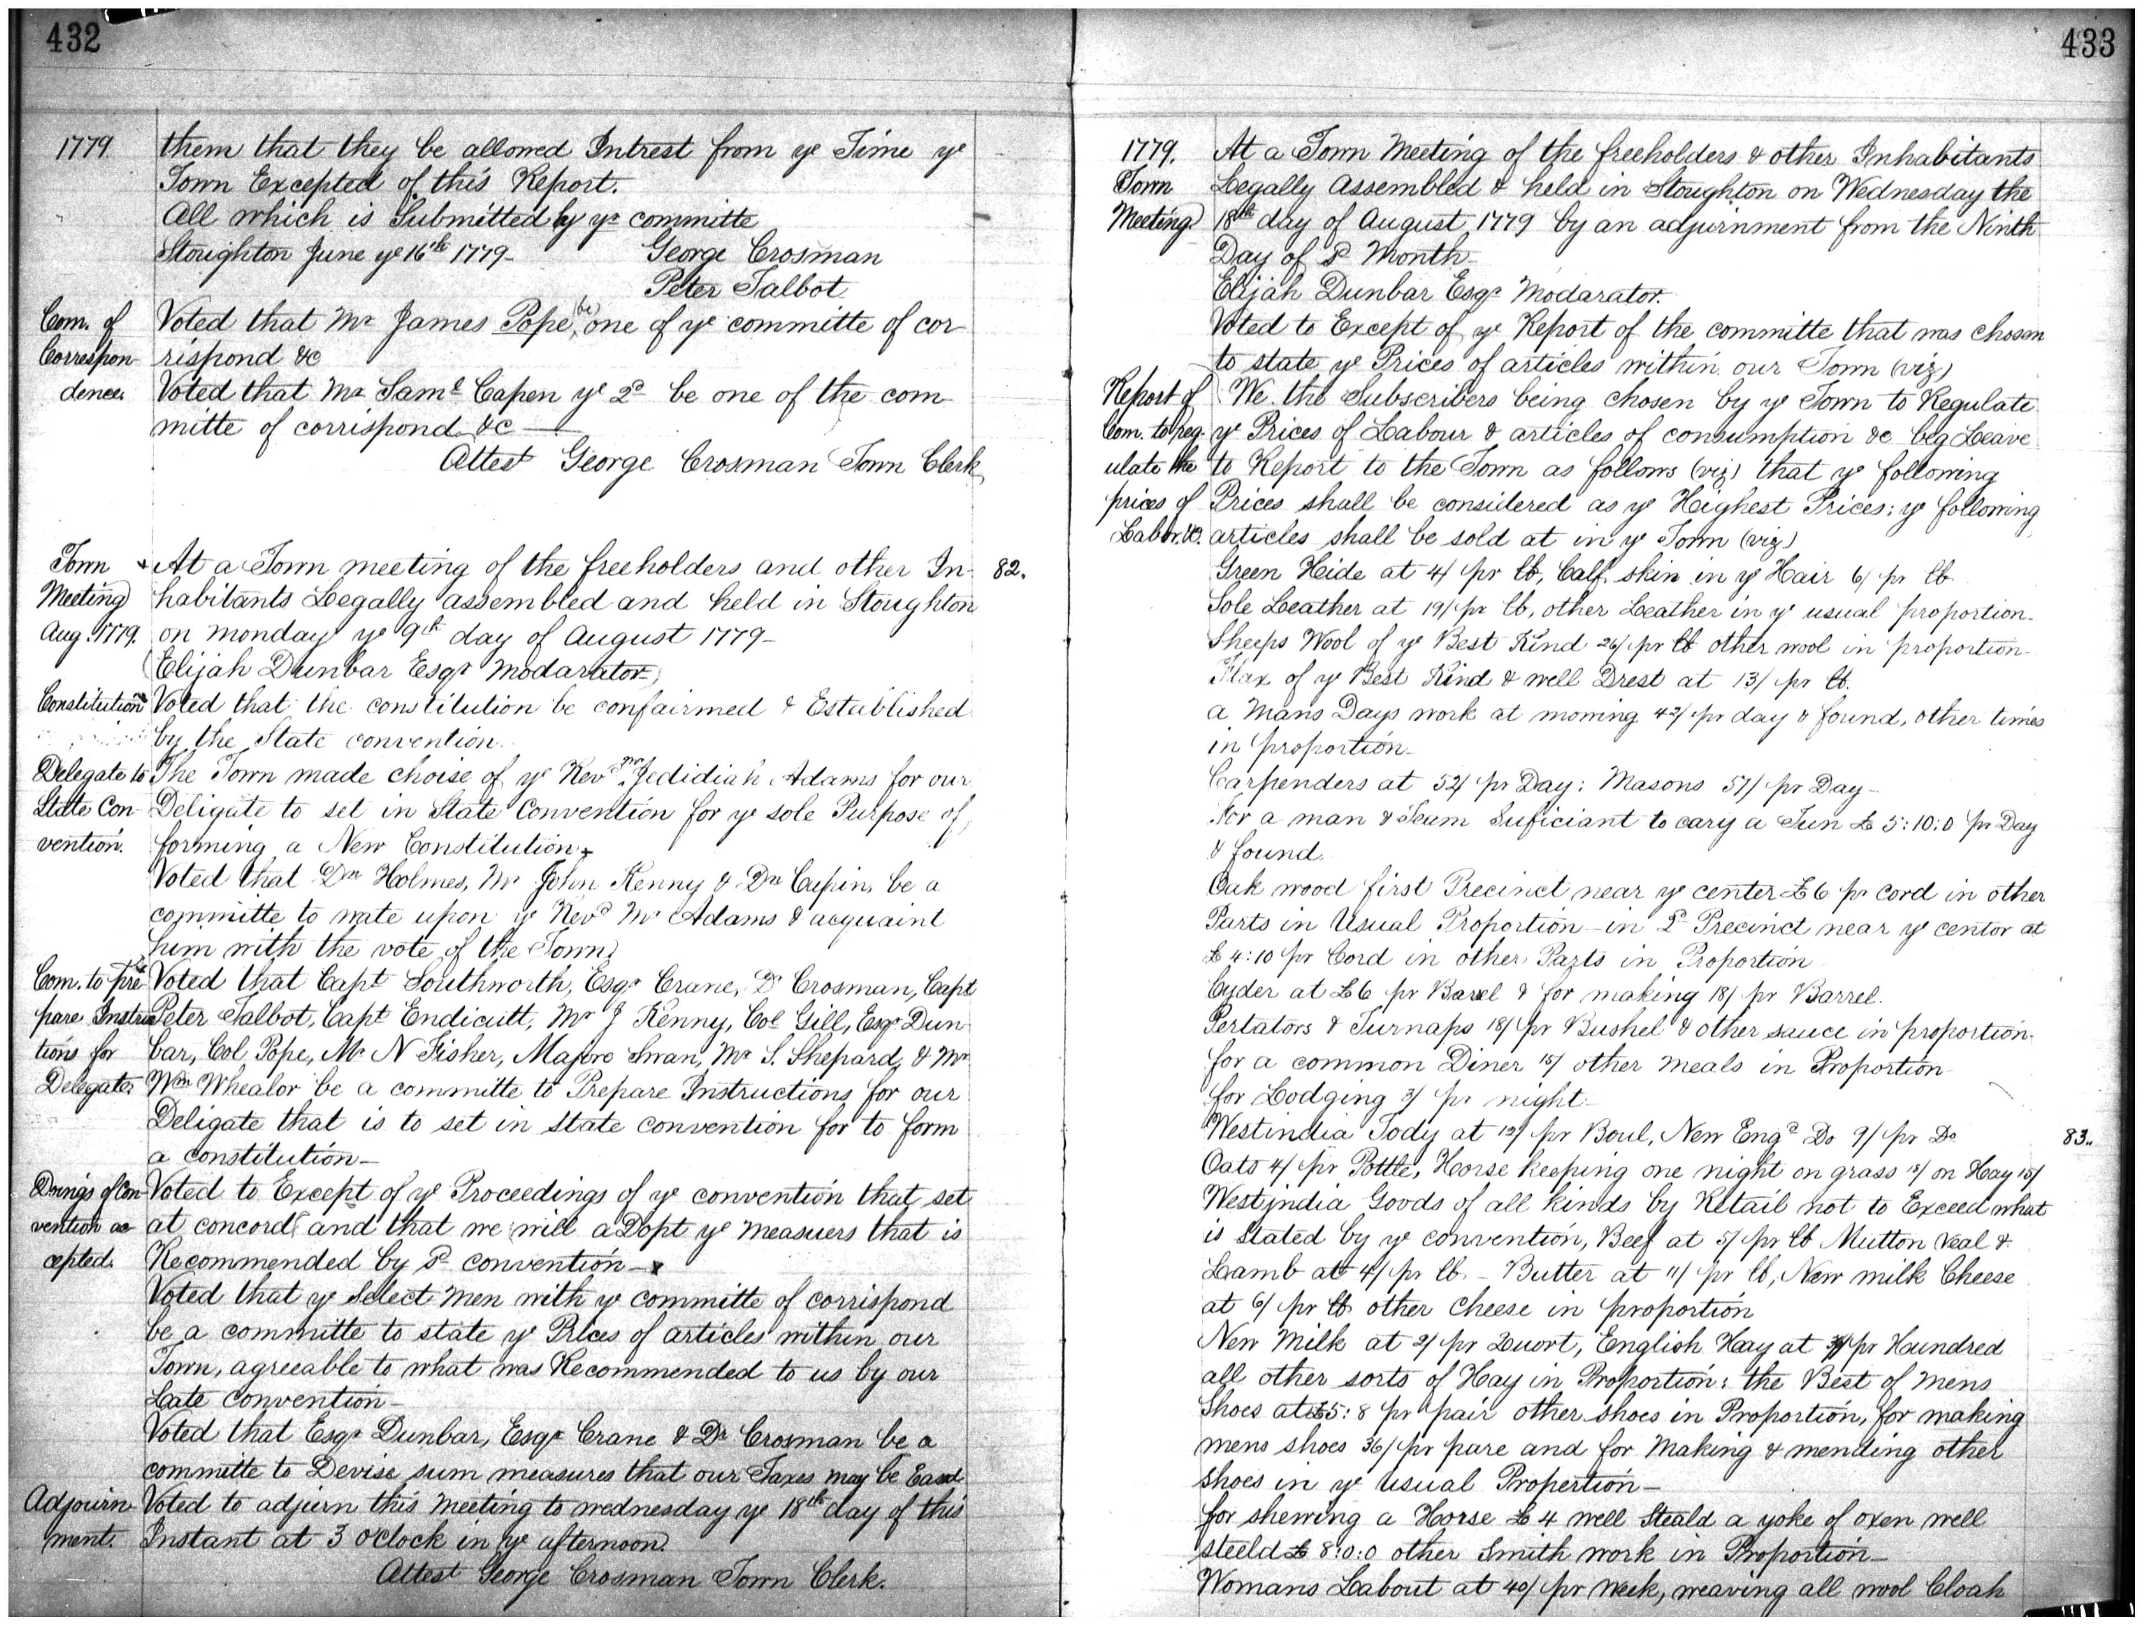 432
1779.
them that they be allowed Intrest from ye Time ye
Town Excepted of this Report.
All which is Submitted by ye committe
Stoughton June ye 16th 1779-
George Crosman
Peter Talbot
Com. of Correspondence.
Voted that Mr James Pope (be) one of ye committe of cor
rispond &c
Voted that Mr Saml Capen ye 2d be one of the com
mitte of corrispond &c —
Attest George Crosman Town Clerk
Town Meeting Aug. 1779.
At a Town meeting of the freeholders and other In-
82.
habitants Legally assembled and held in Stoughton
on monday ye 9th day of August 1779-
Elijah Dunbar Esqr Modarator
Constitution
Voted that the constitution be confairmed & Established
by the State convention.
Delegate to State Convention.
The Town made choise of ye Revd mr Jedidiah Adams for our
Deligate to set in State Convention for ye sole Purpose of
forming a New Constitution
Voted that Dn Holmes, Mr John Kenny & Dn Capin, be a
committe to wate upon ye Revd Mr Adams & acquaint
him with the vote of the Town
Com. to prepare Instructions for Delegate.
Voted that Capt Southworth, Esqr Crane, Dr Crosman, Capt
Peter Talbot, Capt Endicutt, Mr J Kenny, Col Gill, Esqr Dun
bar, Col Pope, Mr N Fisher, Majore Swan, Mr S. Shepard, & Mr
Wm Whealor be a committe to Prepare Instructions for our
Deligate that is to set in state convention for to form
a constitution-
Doings of Convention accepted.
Voted to Except of ye Proceedings of ye convention that set
at concord and that we will aDopt ye measuers that is
Recommended by sd convention-
Voted that ye Select men with ye committe of corrispond
be a committe to state ye Prices of articles within our
Town, agreeable to what was Recommended to us by our
Late convention-
Voted that Esqr Dunbar, Esqr Crane & Dr Crosman be a
committe to Devise sum measures that our Taxes may be Easd
Adjournment.
Voted to adjurn this Meeting to wednesday ye 18th day of this
Instant at 3 oclock in ye afternoon.
Attest George Crosman Town Clerk.
433
1779. Town Meeting
At a Town Meeting of the freeholders & other Inhabitants
Legally Assembled & held in Stoughton on Wednesday the
18th day of August 1779 by an adjurnment from the Ninth
Day of sd Month-
Elijah Dunbar Esqr Modarator.
Voted to Except of ye Report of the committe that was chosen
to state ye Prices of articles within our Town (viz)
Report of Com. to regulate the prices of Labor. &c.
We the Subscribers being chosen by ye Town to Regulate
ye Prices of Labour & articles of consumption &c beg Leave
to Report to the Town as follows (viz) that ye following
Prices shall be considered as ye Highest Prices: ye following
articles shall be sold at in ye Town (viz)
Green Hide at 4/ pr lb, Calf skin in ye Hair 6/ pr lb
Sole Leather at 19/ pr lb, other Leather in ye usual proportion-
Sheeps Wool of ye Best Kind 26/ pr lb other wool in proportion-
Flax of ye Best Kind & well Drest at 13/ pr lb.
a Mans Days work at mowing 42/ pr day & found, other times
in proportion-
Carpenders at 52/ pr Day: Masons 57/ pr Day-
For a man & Team Suficiant to cary a Tun £5:10:0 pr Day
& found.
Oak wood first Precinct near ye center £6 pr cord in other
Parts in Usual Proportion- in 2d Precinct near ye centor at
£4:10 pr Cord in other Parts in Proportion
Cyder at £6 pr Barel & for making 18/ pr Barrel.
Pertators & Turnaps 18/ pr Bushel & other sauce in proportion.
for a common Diner 15/ other meals in Proportion
for Lodging 3/ pr night-
Westindia Tody at 12/ pr Boul, New Engd Do 9/ pr Do
83.
Oats 4/ pr Pottle, Horse keeping one night on grass on Hay 15/
Westindia Goods of all kinds by Retail not to Exceed what
is Stated by ye convention, Beef at 5/ pr lb Mutton Veal &
Lamb at 4/ pr lb - Butter at 11/ pr lb, New milk Cheese
at 6/ pr lb other cheese in proportion
New Milk at 2/ pr Quort, English Hay at pr Hundred
all other sorts of Hay in Proportion: the Best of mens
Shoes at £5:8 pr pair other shoes in Proportion, for making
mens shoes 36/ pr pare and for Making & mending other
shoes in ye usual Propertion-
for shewing a Horse £4 well Steald a yoke of oxen well
steeld £8:0:0 other Smith work in Proportion-
Womans Labout at 40/ pr Week, weaving all wool Cloah